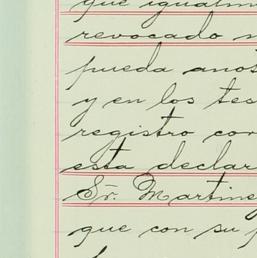 que igualm
revocado n
pueda anot
y en los tes
registro cor
esta declar
Sr. Martine
que con su p